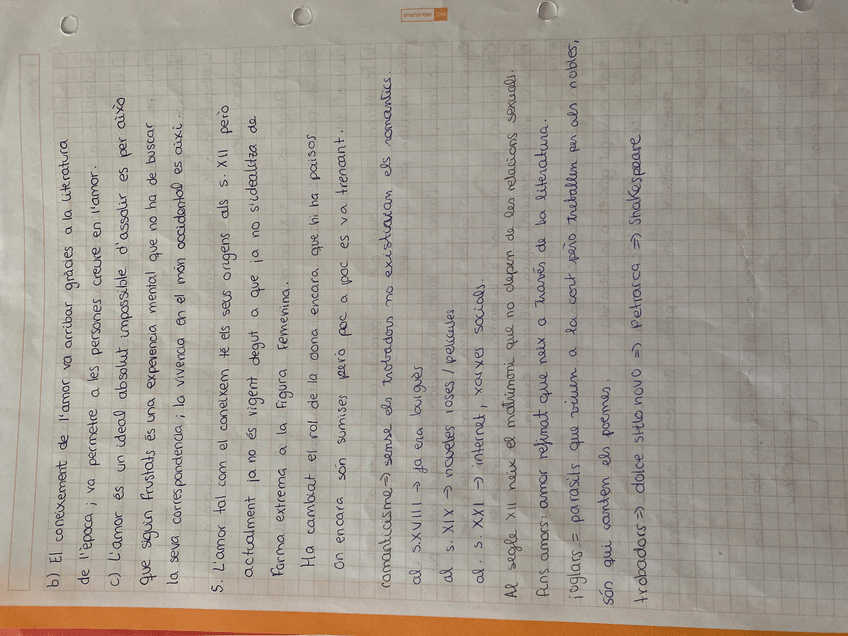 b) El coneixement de l'amor va arribar gràcies a la literatura
de l'època; va permetre a les persones creure en l'amor.
c) L'amor és un ideal absolut impossible d'assolir es per això
que siguin frustats és una experencia mental que no ha de buscar
la seva correspondencia; la vivencia en el món occidental es així.
5. L'amor tal com el coneixem té els seus orígens als s. XII però
actualment ja no és vigent degut a que ja no s'idealitza de
forma extrema a la figura femenina.
Ha cambiat el rol de la dona encara que hi ha països
on encara són sumises però poc a poc es va trencant.
romanticisme => sense els trobadors no existirian els romantics.
al s.XVIII -> ja era burgès
al s. XIX => noveles roses / pelicules
al. s. XXI -> internet, xarxes socials.
Al segle XII neix el matrimoni que no depen de les relacions sexuals.
Fins amors: amor refinat que neix a través de la literatura.
joglars = parasits que viuen a la cort però treballen per als nobles,
són qui canten els poemes.
trobadors => dolce stilo novo => Petrarca => Shakespeare